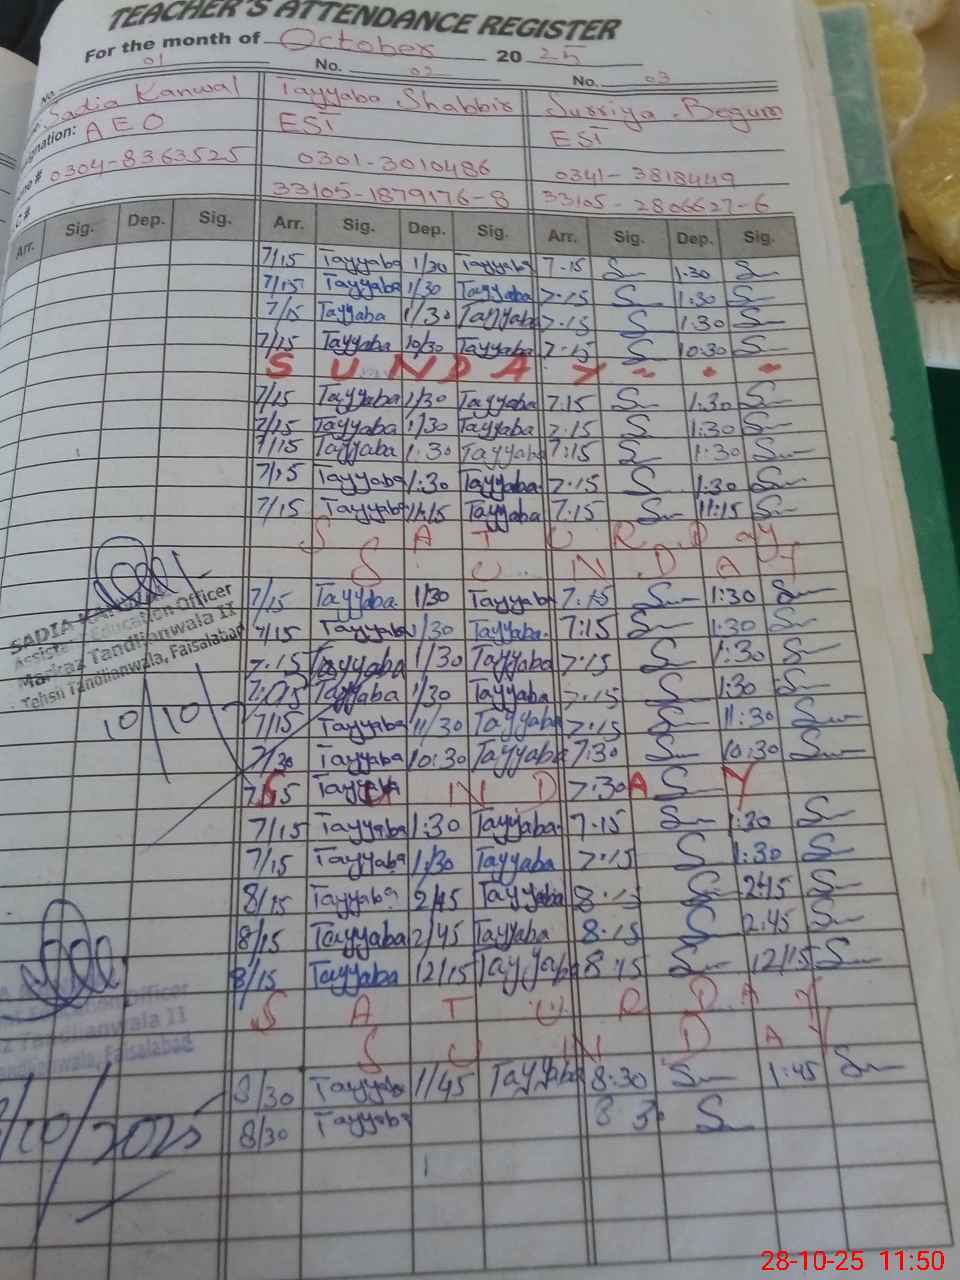 TEACHER'S ATTENDANCE REGISTER
For the month of October 20 25
No. 01 No. 02 No. 03
Sadia Kanwal Tayyaba Shabbir Surriya Begum
AEO EST EST
0304-8363525 0301-3010486 0341-3818449
33105-1879176-8 33105-2806627-6
Arr. Sig. Dep. Sig. Arr. Sig. Dep. Sig. Arr. Sig. Dep. Sig.
7/15 Tayyaba 1/30 Tayyaba 7.15 1:30
7/15 Tayyaba 1/30 Tayyaba 7.15 1:30
7/15 Tayyaba 1/30 Tayyaba 7.15 1:30
7/15 Tayyaba 10/30 Tayyaba 7.15 10:30
SUNDAY
7/15 Tayyaba 1/30 Tayyaba 7.15 1:30
7/15 Tayyaba 1/30 Tayyaba 7.15 1:30
7/15 Tayyaba 1:30 Tayyaba 7:15 1:30
7/15 Tayyaba 1:30 Tayyaba 7.15 1:30
7/15 Tayyaba 11:15 Tayyaba 7:15 11:15
SATURDAY
SUNDAY
7/15 Tayyaba 1/30 Tayyaba 7:15 1:30
7/15 Tayyaba 1/30 Tayyaba 7:15 1:30
7.15 Tayyaba 1/30 Tayyaba 7.15 1:30
Tayyaba 1/30 Tayyaba 7.15 1:30
7/15 Tayyaba 11/30 Tayyaba 7.15 11:30
7/30 Tayyaba 10:30 Tayyaba 7:30 10:30
Tayyaba 7:30
SUNDAY
7/15 Tayyaba 1:30 Tayyaba 7.15 1:30
7/15 Tayyaba 1:30 Tayyaba 7.15 1:30
8/15 Tayyaba 2/45 Tayyaba 8.15 2:45
8/15 Tayyaba 2/45 Tayyaba 8.15 2:45
8/15 Tayyaba 12/15 Tayyaba 8:15 12/15
SATURDAY
SUNDAY
8/30 Tayyaba 1/45 Tayyaba 8:30 1:45
8/30 Tayyaba 8 30
SADIA KANWAL
Assistant Education Officer
Markaz Tandlianwala II
Tehsil Tandlianwala, Faisalabad
10/10
Officer
Tandlianwala II
Tandlianwala, Faisalabad
/10/2025
28-10-25 11:50